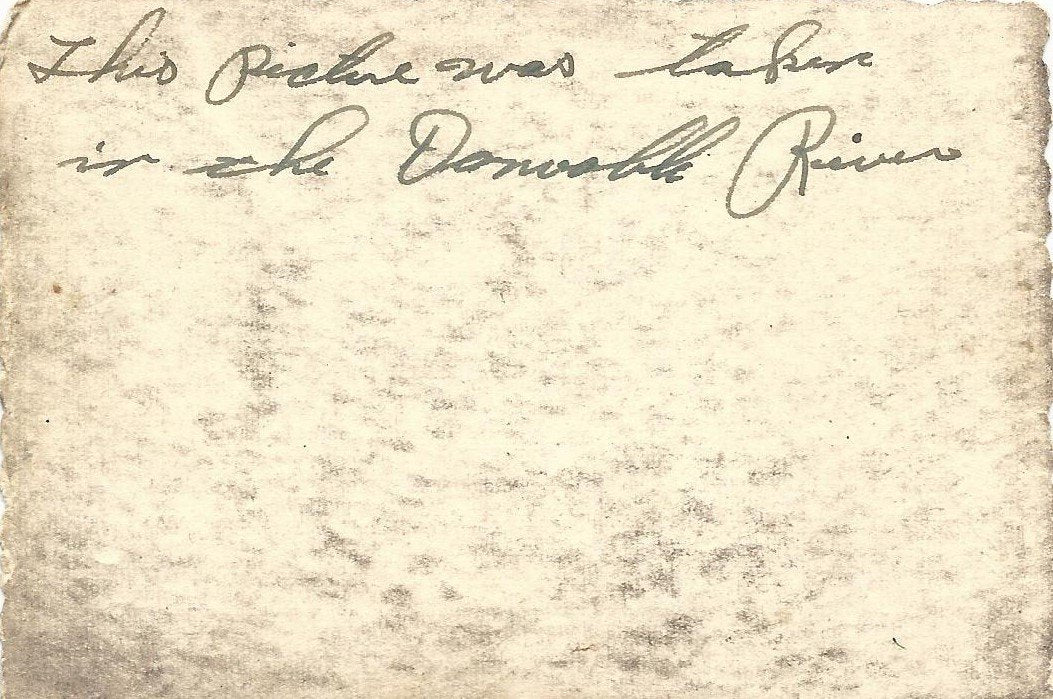 This picture was taken
in the Danvable River